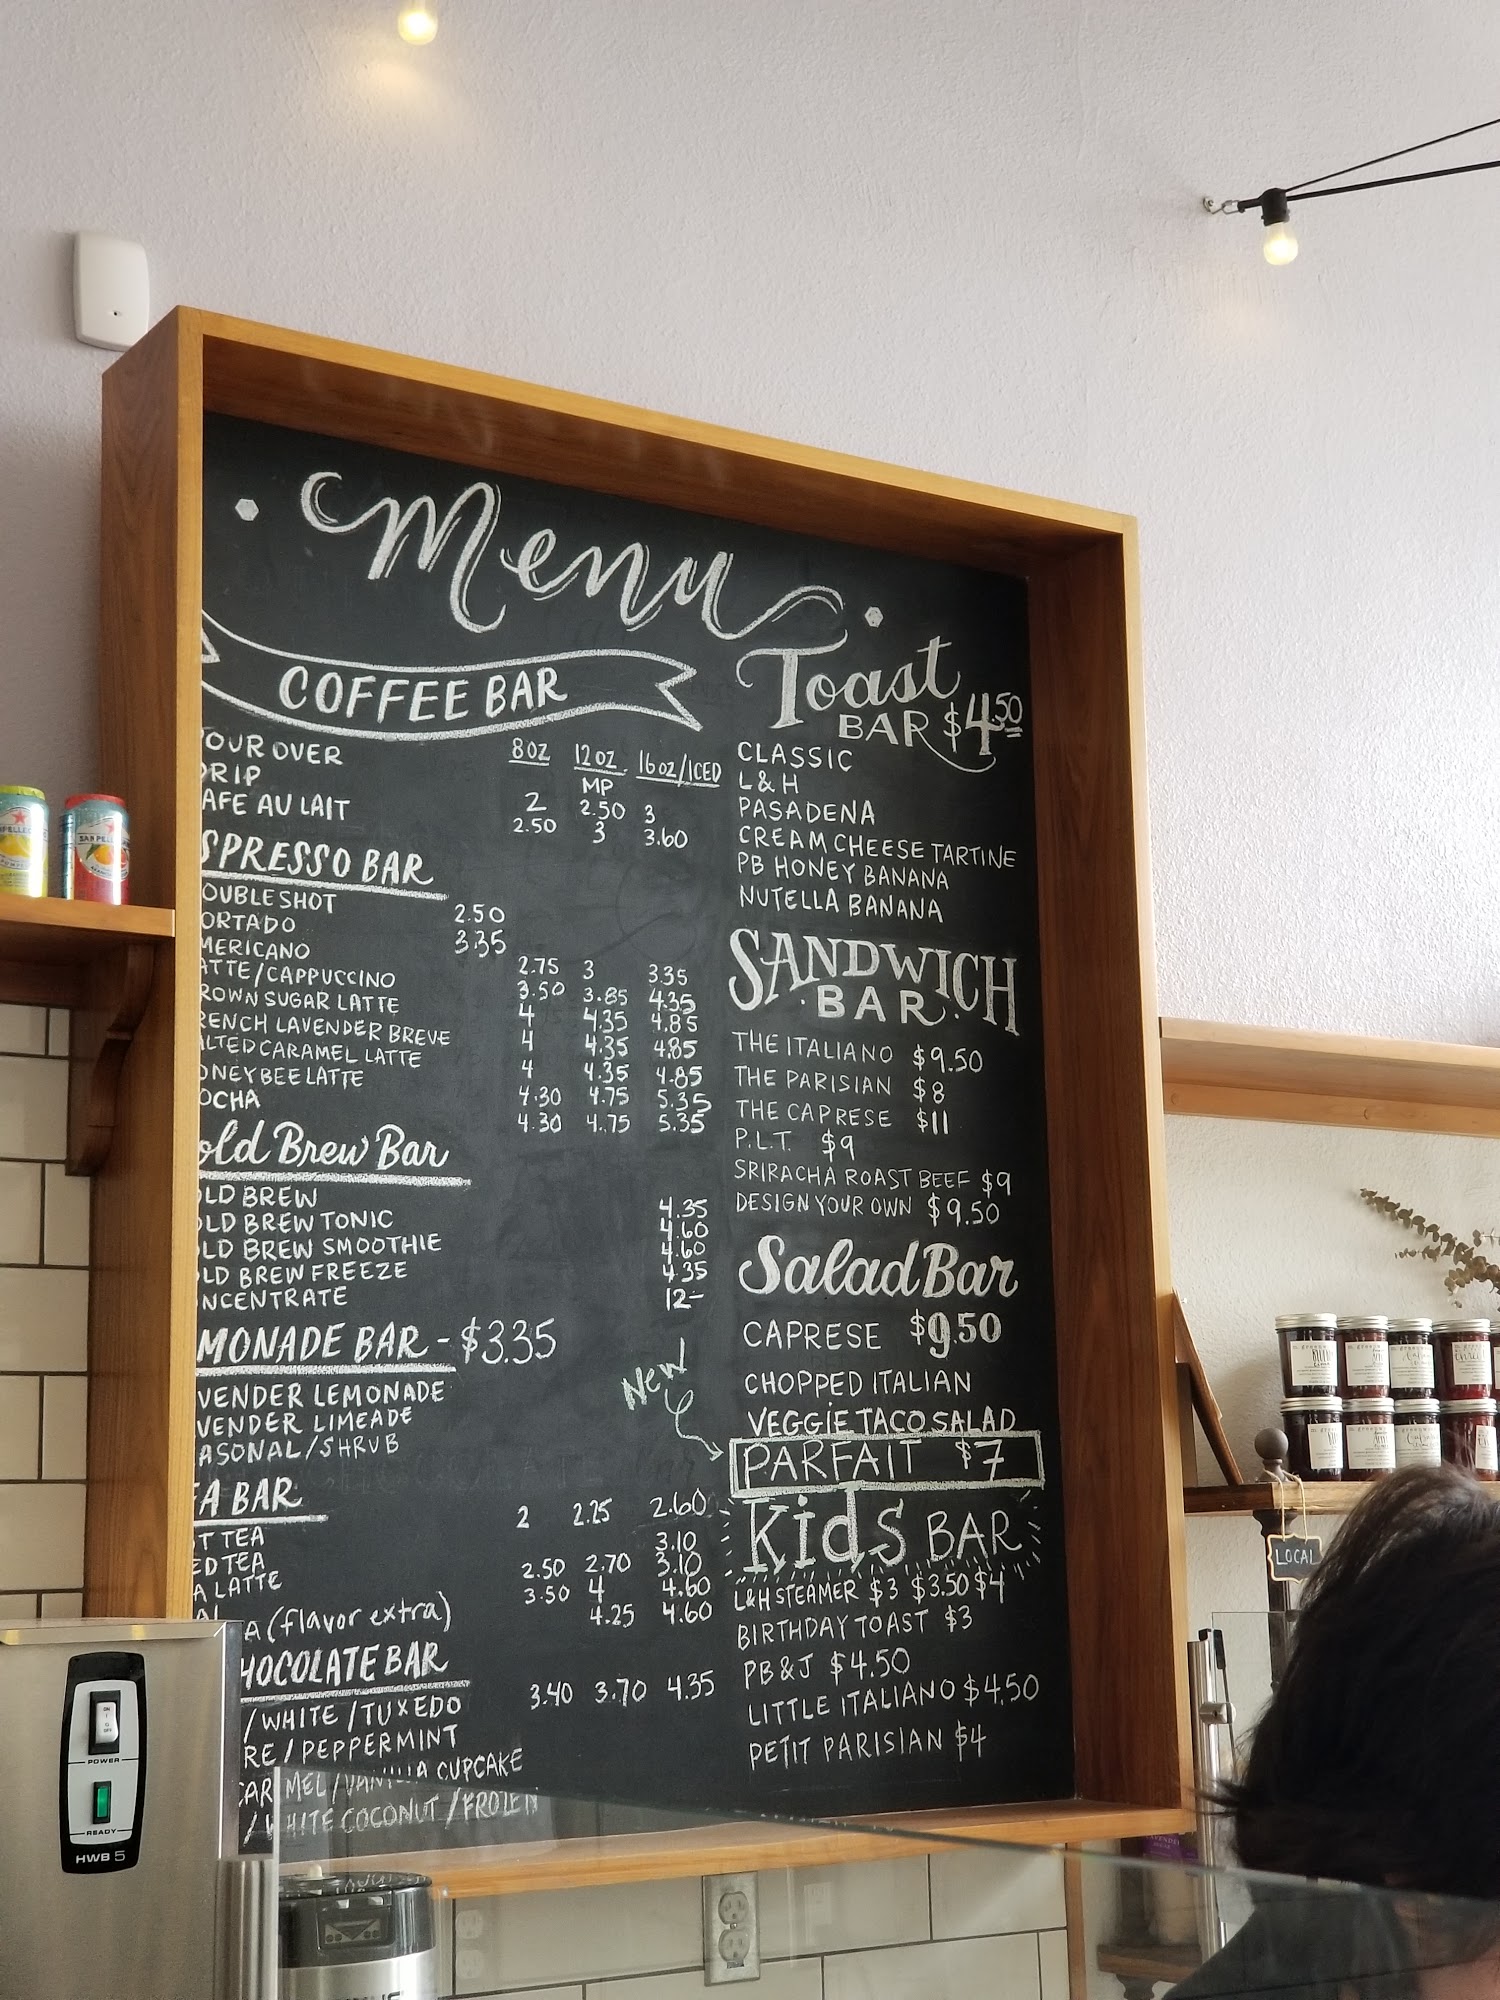 Menu
COFFEE BAR
8 OZ 12 OZ. 16 OZ/ICED
OUR OVER MP
RIP 2 2.50 3
AFE AU LAIT 2.50 3 3.60
SPRESSO BAR
OUBLE SHOT 2.50
ORTADO 3.35
MERICANO 2.75 3 3.35
ATTE/CAPPUCCINO 3.50 3.85 4.35
ROWN SUGAR LATTE 4 4.35 4.85
RENCH LAVENDER BREVE 4 4.35 4.85
ALTED CARAMEL LATTE 4 4.35 4.85
ONEY BEE LATTE 4.30 4.75 5.35
OCHA 4.30 4.75 5.35
old Brew Bar
OLD BREW 4.35
OLD BREW TONIC 4.60
OLD BREW SMOOTHIE 4.60
OLD BREW FREEZE 4.35
NCENTRATE 12-
MONADE BAR - $3.35
VENDER LEMONADE
VENDER LIMEADE
ASONAL/SHRUB
EA BAR
T TEA 2 2.25 2.60
ED TEA 3.10
A LATTE 2.50 2.70 3.10
AI 3.50 4 4.60
A (flavor extra) 4.25 4.60
HOCOLATE BAR
/WHITE/TUXEDO 3.40 3.70 4.35
RE/PEPPERMINT
CARAMEL/VANILLA CUPCAKE
/WHITE COCONUT/FROZEN
Toast
BAR $4.50
CLASSIC
L & H
PASADENA
CREAM CHEESE TARTINE
PB HONEY BANANA
NUTELLA BANANA
SANDWICH
BAR
THE ITALIANO $9.50
THE PARISIAN $8
THE CAPRESE $11
P.L.T. $9
SRIRACHA ROAST BEEF $9
DESIGN YOUR OWN $9.50
Salad Bar
CAPRESE $9.50
CHOPPED ITALIAN
VEGGIE TACO SALAD
New
PARFAIT $7
Kids BAR
L&H STEAMER $3 $3.50 $4
BIRTHDAY TOAST $3
PB & J $4.50
LITTLE ITALIANO $4.50
PETIT PARISIAN $4
LOCAL
ON
OFF
POWER
READY
HWB 5